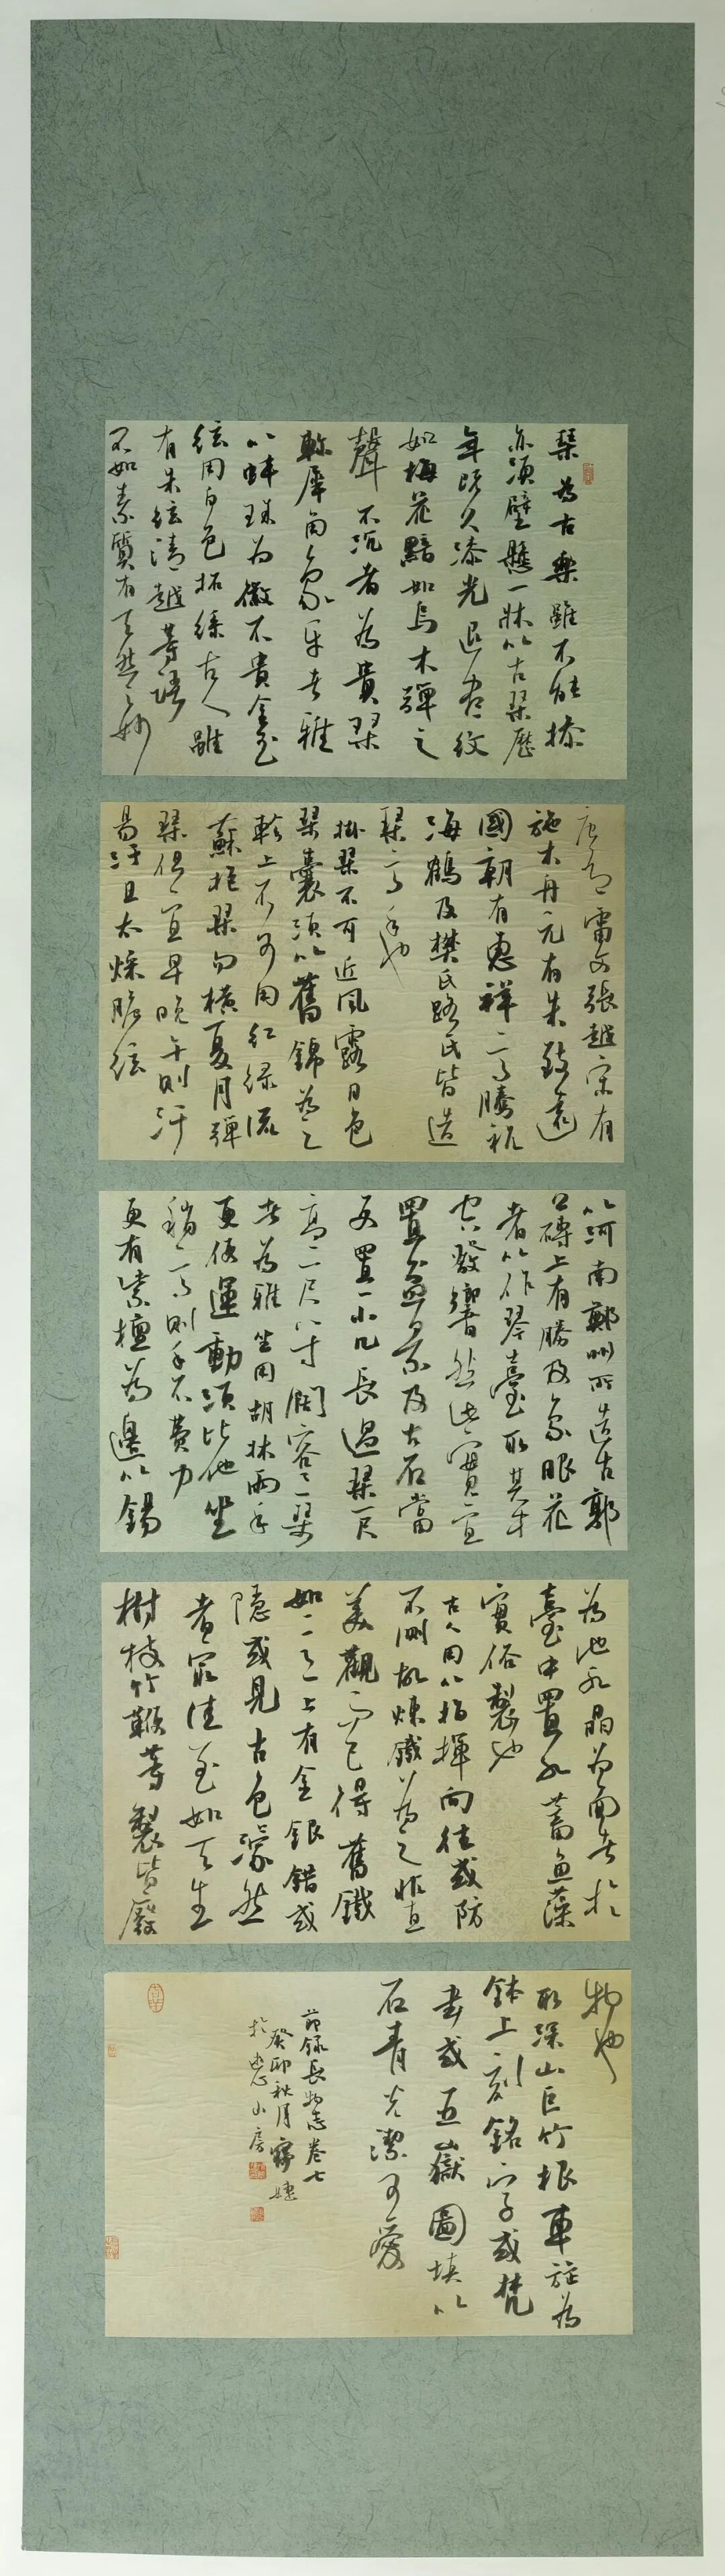 琴為古樂雖不能操
亦須壁懸一牀以古琴歷
年既久漆光退盡紋
如梅花黯如烏木彈之
聲不沉者為貴琴
軫犀角象牙者雅
以蚌珠為徽不貴金玉
絃用白色柘絲古人雖
有朱絃清越等語
不如素質有天然之妙
唐有雷文張越宋有
施木舟元有朱致遠
國朝有惠祥高騰祝
海鶴及樊氏路氏皆造
琴高手也
掛琴不可近風露日色
琴囊須以舊錦為之
軫上不可用紅綠流
蘇抱琴勿橫夏月彈
琴但宜早晚午則汗
易汙且太燥脆絃
以河南鄭州所造古郭
公磚上有勝及象眼花
者以作琴臺取其中
空發響然此實宜
置盆景及古石當
更置一小几長過琴一尺
高二尺八寸闊容三琴
者為雅坐用胡牀兩手
更便運動須比他坐
稍高則手不費力
更有紫檀為邊以錫
為池水晶為面者於
臺中置水蓄魚藻
實俗製也
古人用以指揮向往或防
不測故煉鐵為之非直
美觀而已得舊鐵
如意上有金銀錯或
隱或見古色濛然
者最佳至如天生
樹枝竹鞭等製皆廢
物也
取深山巨竹根車旋為
鉢上刻銘字或梵
書或五嶽圖填以
石青光潔可愛
節錄長物志卷七
癸卯秋月
於 山房